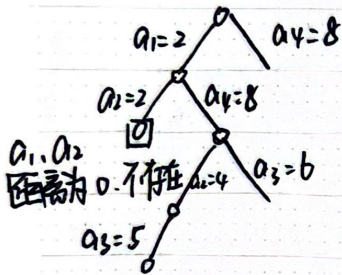 a₁=2
a₄=8
a₂=2
a₄=8
0
a₁、a₂
距离为0.不存在
a₂=4
a₃=6
a₃=5